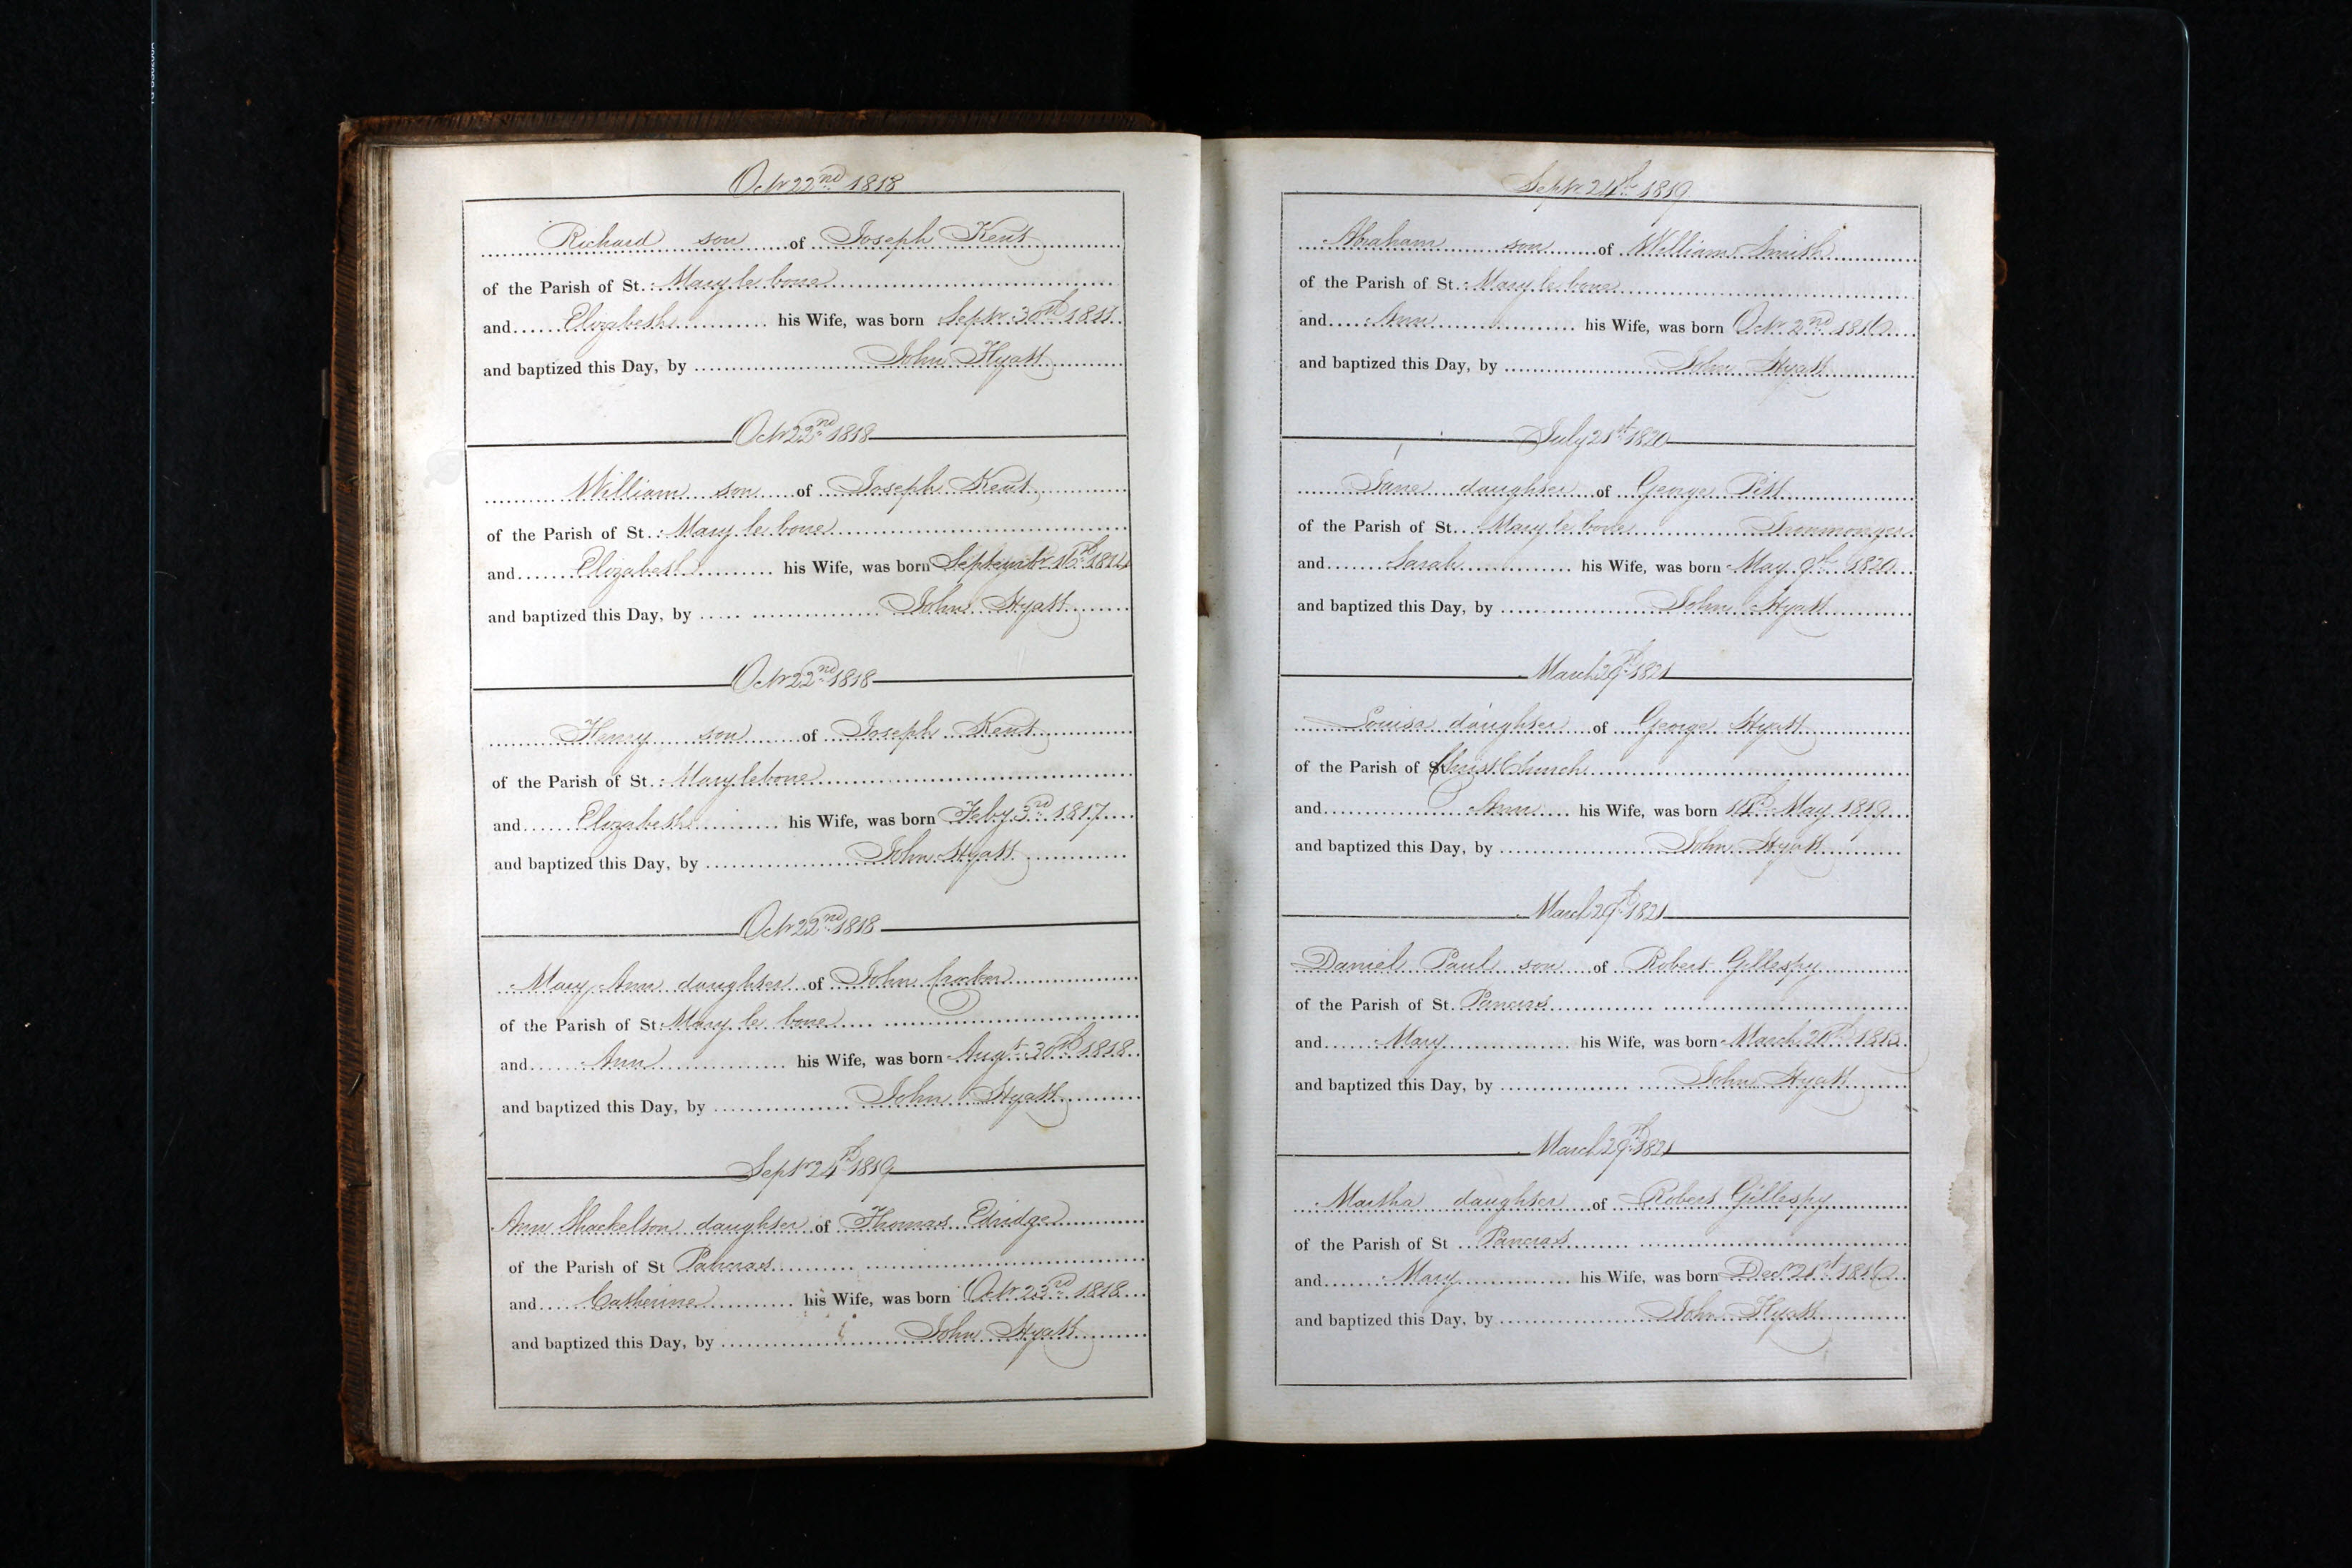 Octr 22nd 1818
Richard son of Joseph Kent
of the Parish of St. Mary le bone
and Elizabeth his Wife, was born Septr 30th 1811
and baptized this Day, by John Hyatt
Octr 22nd 1818
William son of Joseph Kent
of the Parish of St. Mary le bone
and Elizabeth his Wife, was born September 16th 1814
and baptized this Day, by John Hyatt
Octr 22nd 1818
Henry son of Joseph Kent
of the Parish of St. Mary le bone
and Elizabeth his Wife, was born Feby 3rd 1817
and baptized this Day, by John Hyatt
Octr 22nd 1818
Mary Ann daughter of John
of the Parish of St. Mary le bone
and Ann his Wife, was born Augt 30th 1818
and baptized this Day, by John Hyatt
Septr 24th 1819
Ann Shackelton daughter of Thomas Edridge
of the Parish of St Pancras
and Catherine his Wife, was born Octr 23rd 1818
and baptized this Day, by John Hyatt
Septr 24th 1819
Abraham son of William Smith
of the Parish of St. Mary le bone
and Ann his Wife, was born Octr 2nd 1816
and baptized this Day, by John Hyatt
July 21st 1820
Jane daughter of George Pitt
of the Parish of St. Mary le bone Ironmonger
and Sarah his Wife, was born May 9th 1820
and baptized this Day, by John Hyatt
March 29th 1821
Louisa daughter of George Hyatt
of the Parish of Christ Church
and Ann his Wife, was born 14th May 1819
and baptized this Day, by John Hyatt
March 29th 1821
Daniel Paul son of Robert Gillespy
of the Parish of St. Pancras
and Mary his Wife, was born March 20th 1813
and baptized this Day, by John Hyatt
March 29th 1821
Martha daughter of Robert Gillespy
of the Parish of St Pancras
and Mary his Wife, was born Decr 21st 1816
and baptized this Day, by John Hyatt